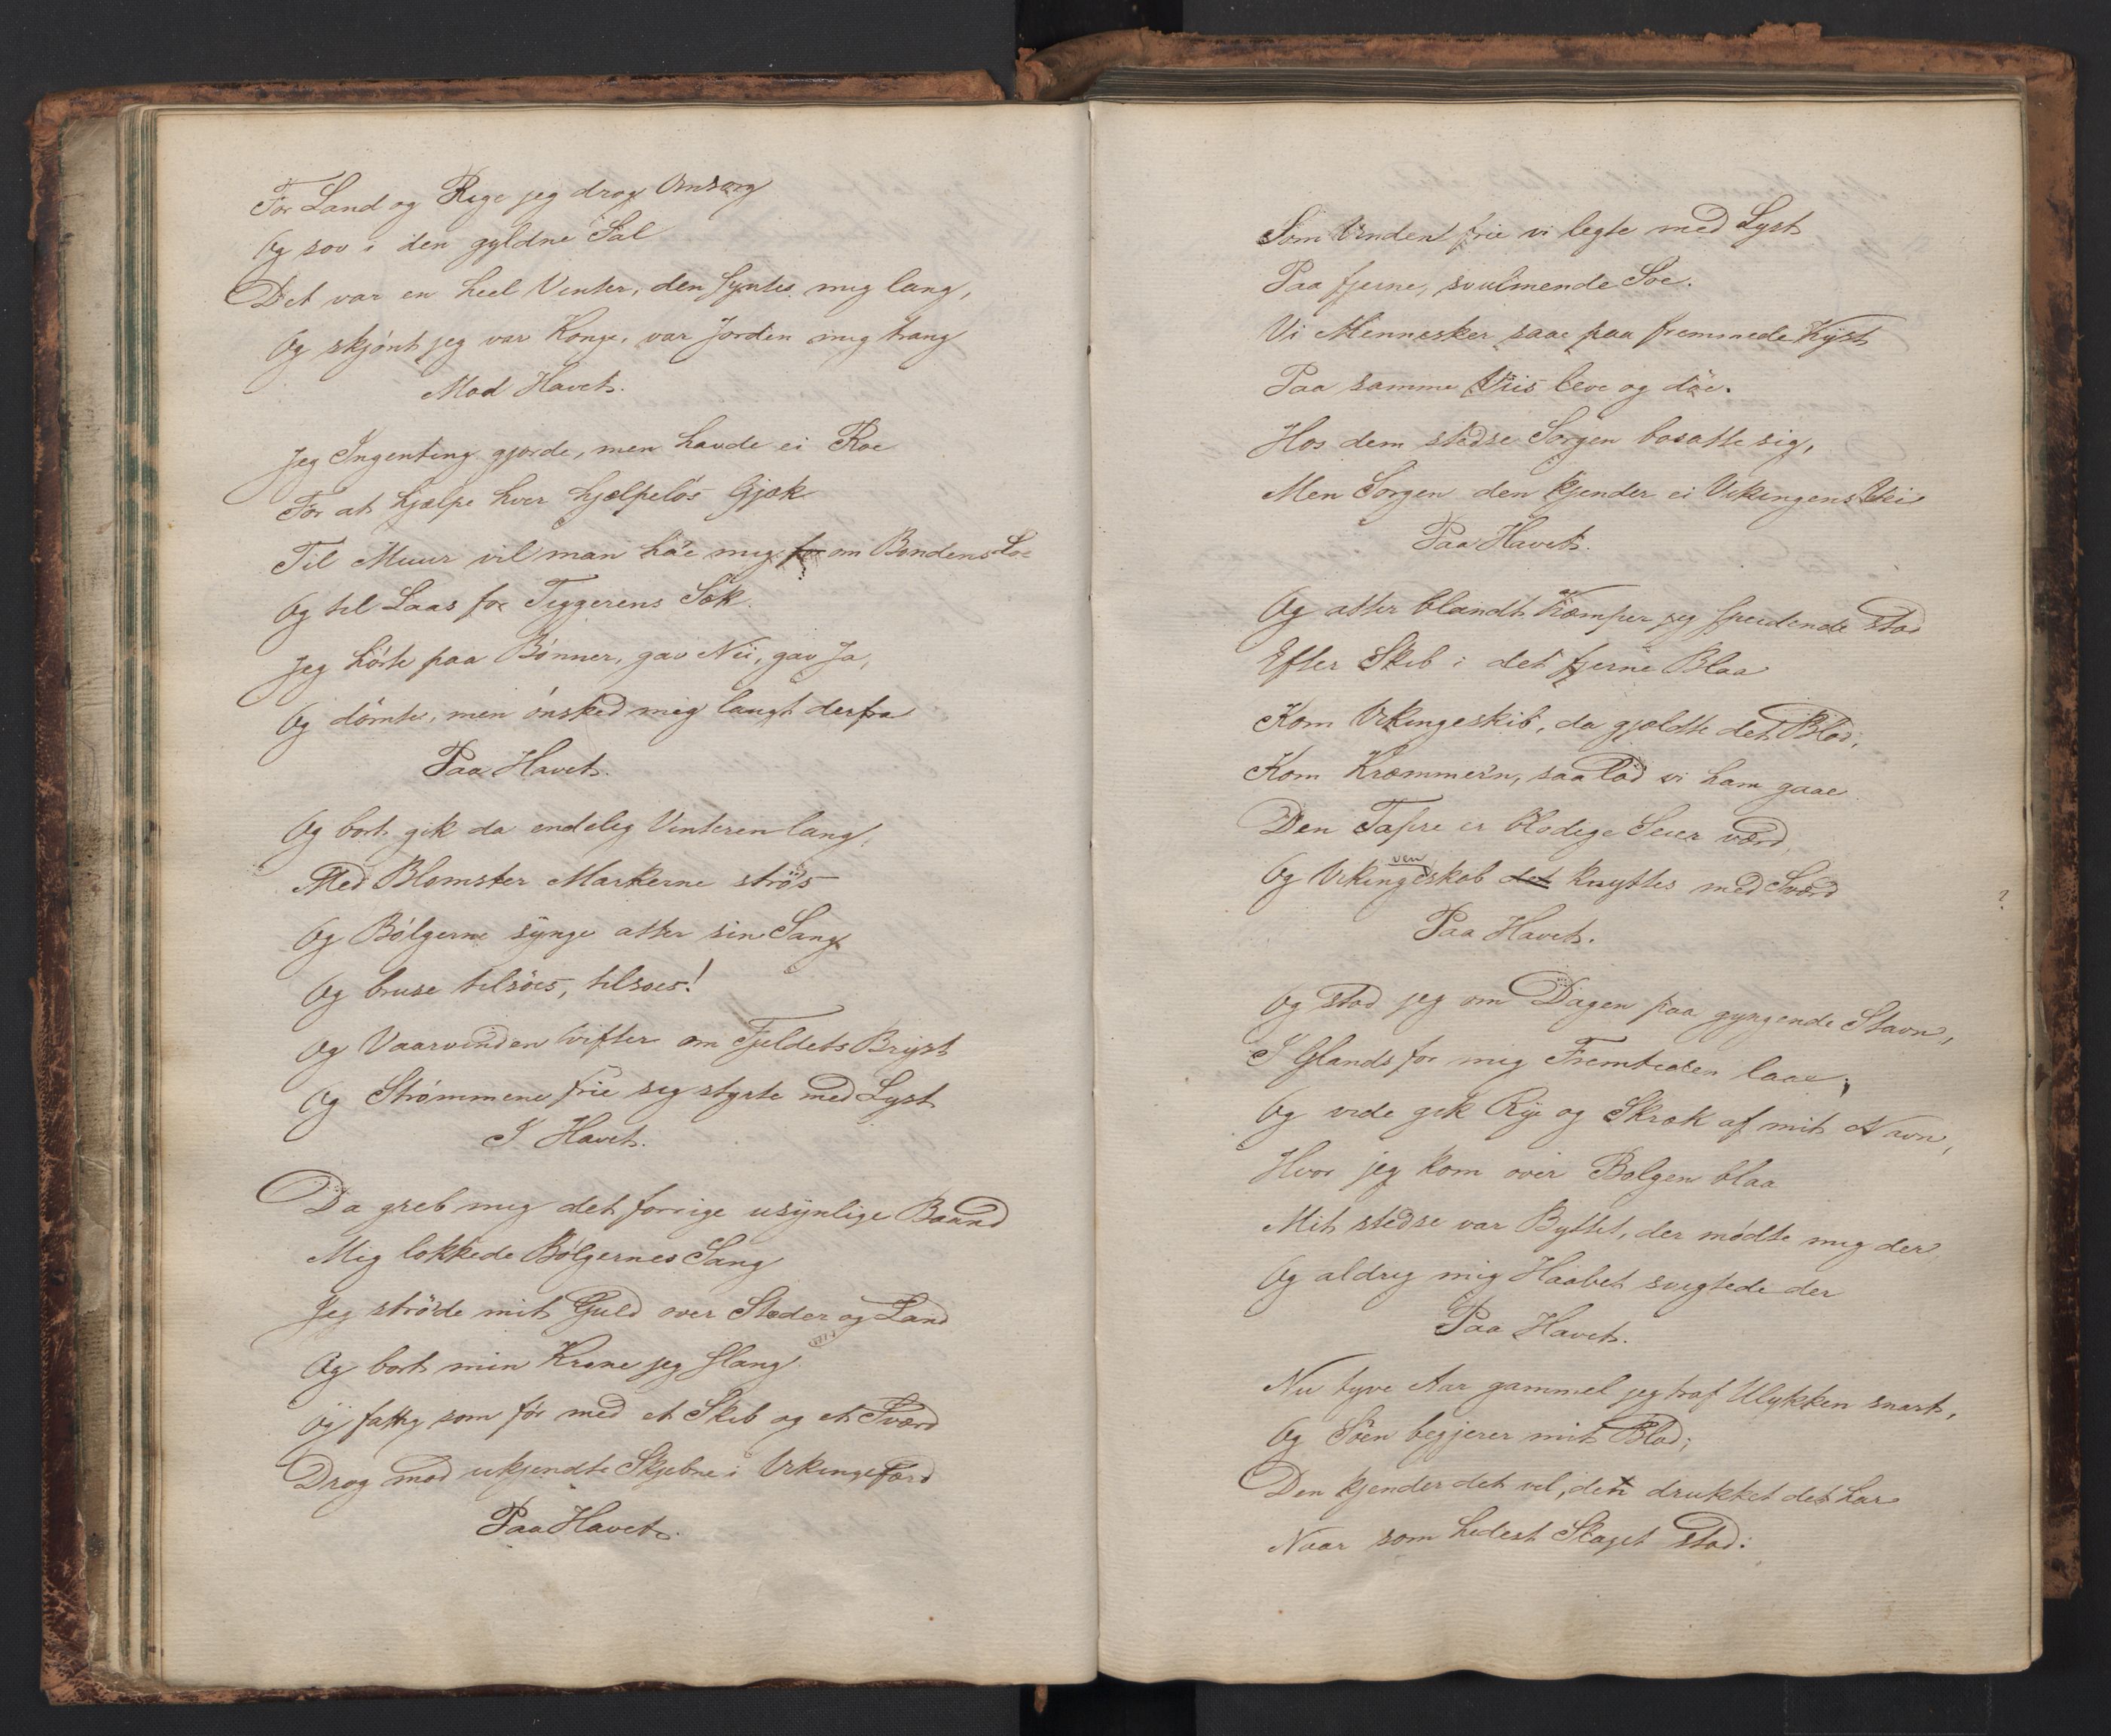 For Land og Rige jeg drog Omsorg
Og sov i den gyldne Sal
Det var en heel Vinter, den syntes mig lang,
Og skjønt jeg var Konge, var Jorden mig trang
Mod Havet.
Jeg Ingenting gjorde, men havde ei Roe
For at hjælpe hver hjælpeløs Gjæk
Til Muur vil man ha'e mig for om Bondens Lo
Og til Laas for Tiggerens Sæk.
Jeg hørte paa Bønner, gav Nei, gav Ja,
Og dømte, men ønsked mig langt derfra
Paa Havet.
Og bort gik da endelig Vinteren lang,
Med Blomster Markerne strøes
Og Bølgerne synge atter sin Sang
Og bruse tilsøes, tilsøes!
Og Vaarvinden vifter om Fjeldets Bryst
Og Strømmene frie sig styrte med Lyst
I Havet.
Da greb mig det forrige usynlige Baand
Mig lokkede Bølgernes Sang
Jeg strøde mit Guld over Stæder og Land
Og bort min Krone jeg slang
Og fattig som før med et Skib og et Sværd
Drog mod ukjendte Skjebne i Vikingefærd
Paa Havet.
Som Vinden frie vi legte med Lyst
Paa fjerne, svulmende Søe.
Vi Mennesker saae paa fremmede Kyst
Paa samme Viis leve og døe.
Hos dem stedse Sorgen bosatte sig,
Men Sorgen den kjender ei Vikingens Vei
Paa Havet.
Og atter blandt Kæmper jeg speidende stod
Efter Skib i det fjerne Blaa
Kom Vikingeskib, da gjældte det Blod;
Kom Kræmmer'n, saa lod vi ham gaae
Den Tapre er blodige Seier værd,
Og Vikingevenskab det knyttes med Sværd
Paa Havet.
?
Og stod jeg om Dagen paa gyngende Stavn,
I Glands for mig Fremtiden laae;
Og vide gik Ry og Skræk af mit Navn,
Hvor jeg kom over Bølgen blaa
Mit stedse var Byttet, der mødte mig der
Og aldrig mig Haabet svigtede der
Paa Havet.
Nu tyve Aar gammel jeg traf Ulykken snart,
Og Søen begjerer mit Blod;
Den kjender det vel, den drukket det har
Naar som hedest Slaget stod: